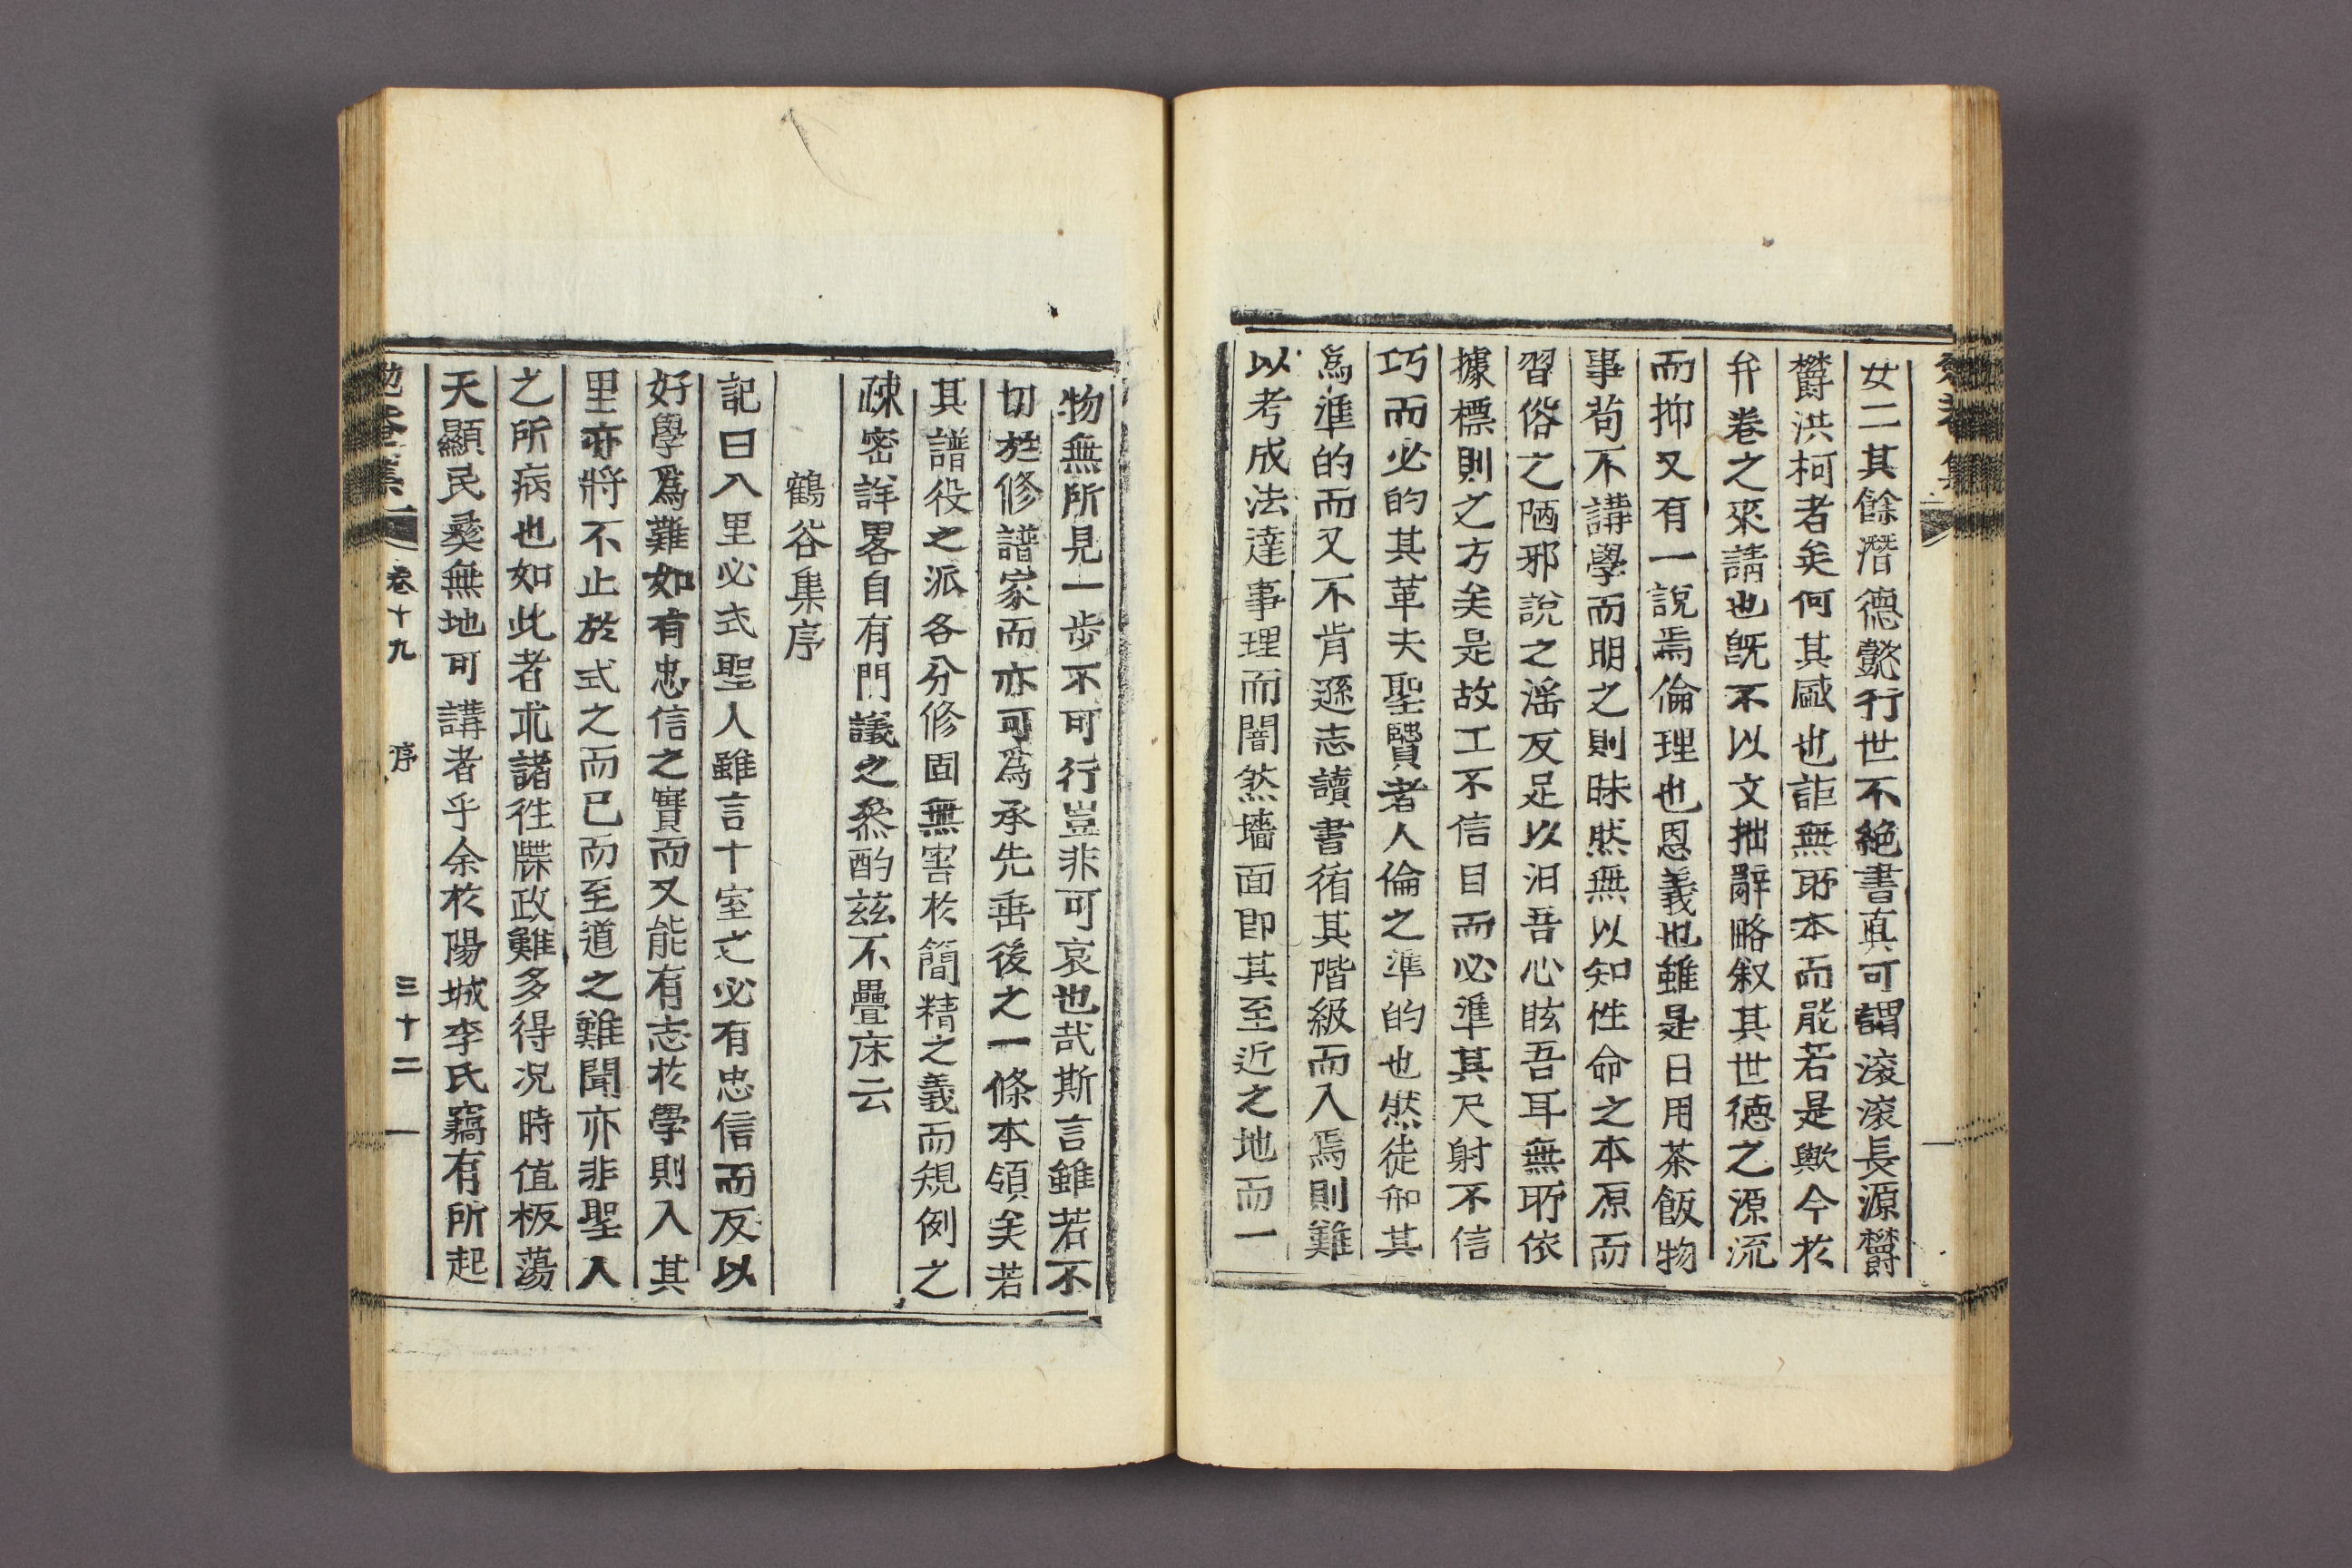 女二其餘潛德懿行世不絶書眞可謂滾滾長源欝
欝洪柯者矣何其盛也詎無所本而能若是歟今於
弁卷之來請也旣不以文拙辭略叙其世德之源流
而抑又有一說焉倫理也恩義也雖是日用茶飯物
事苟不講學而明之則昧然無以知性命之本原而
習俗之陋邪說之淫反足以汨吾心眩吾耳無所依
據標則之方矣是故工不信目而必準其尺射不信
巧而必的其革夫聖賢者人倫之準的也然徒知其
爲準的而又不肯遜志讀書循其階級而入焉則難
以考成法達事理而闇然墻面卽其至近之地而一
物無所見一步不可行豈非可哀也哉斯言雖若不
切於修譜家而亦可爲承先垂後之一條本領矣若
其譜役之派各分修固無害於簡精之義而規例之
疎密詳畧自有門議之叅酌玆不疊床云
鶴谷集序
記曰入里必式聖人雖言十室之必有忠信而反以
好學爲難如有忠信之實而又能有志於學則入其
里亦將不止於式之而已而至道之難聞亦非聖人
之所病也如此者求諸徃牒政難多得況時值板蕩
天顯民彝無地可講者乎余於陽城李氏竊有所起
勉菴集 卷十九 序 三十二